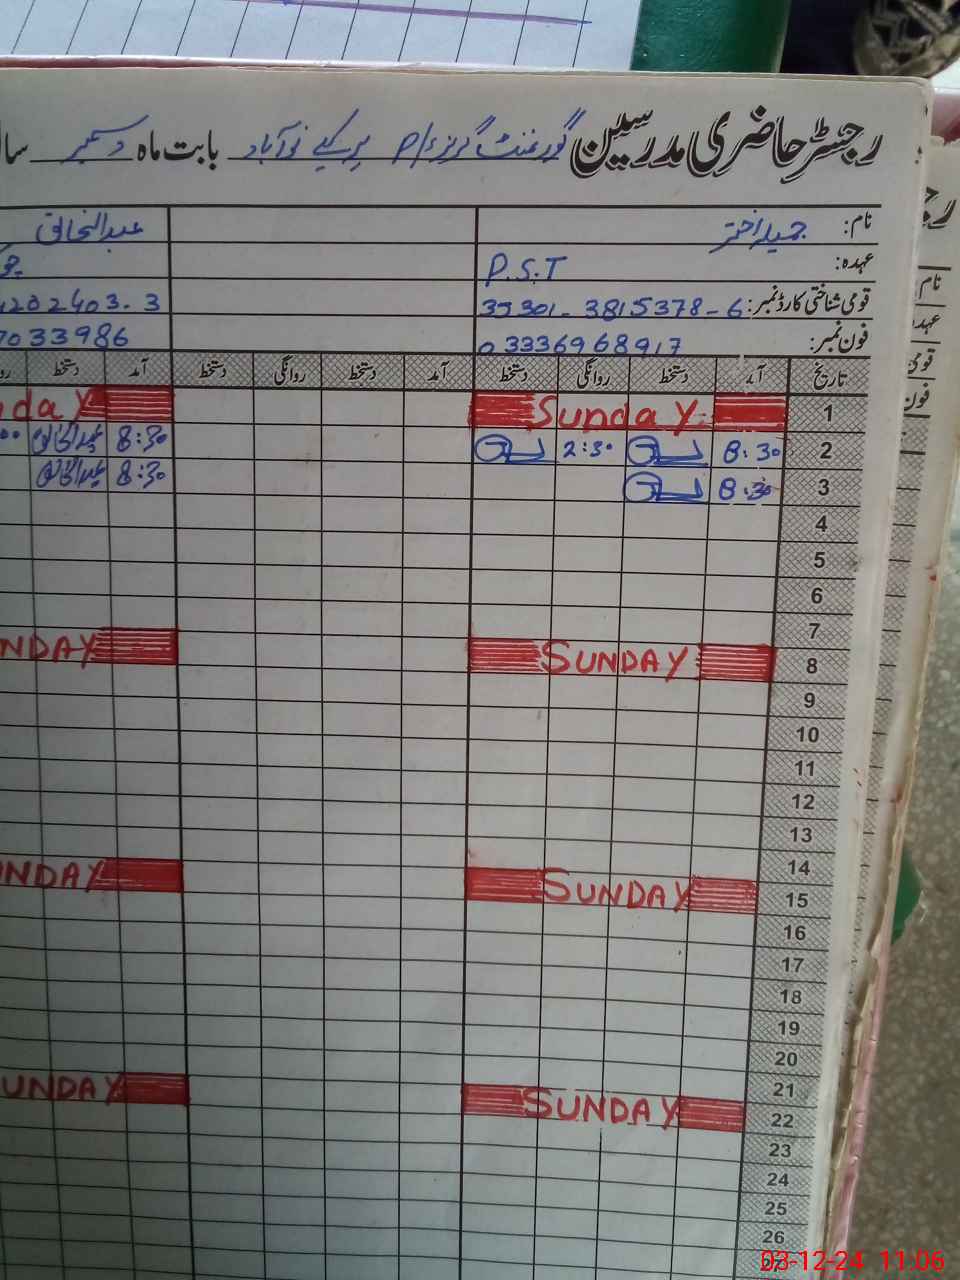 رجسٹر حاضری مدرسین گورنمنٹ گرلز P/ بابت ماہ دسمبر سال
نام: جمیلہ اختر عبدالخالق
عہدہ: P.S.T
قومی شناختی کارڈ نمبر: 35301-3815378-6 202403-3
فون نمبر: 03336968917 7033986
تاریخ آمد دستخط روانگی دستخط آمد دستخط روانگی دستخط آمد دستخط
1 Sunday
2 8:30 2:30 8:30 عبدالخالق
3 8:30 8:30 عبدالخالق
4
5
6
7
8 SUNDAY NDAY
9
10
11
12
13
14
15 SUNDAY NDAY
16
17
18
19
20
21
22 SUNDAY UNDAY
23
24
25
26
27
نام
عہدہ
قومی
فون
03-12-24 11:06